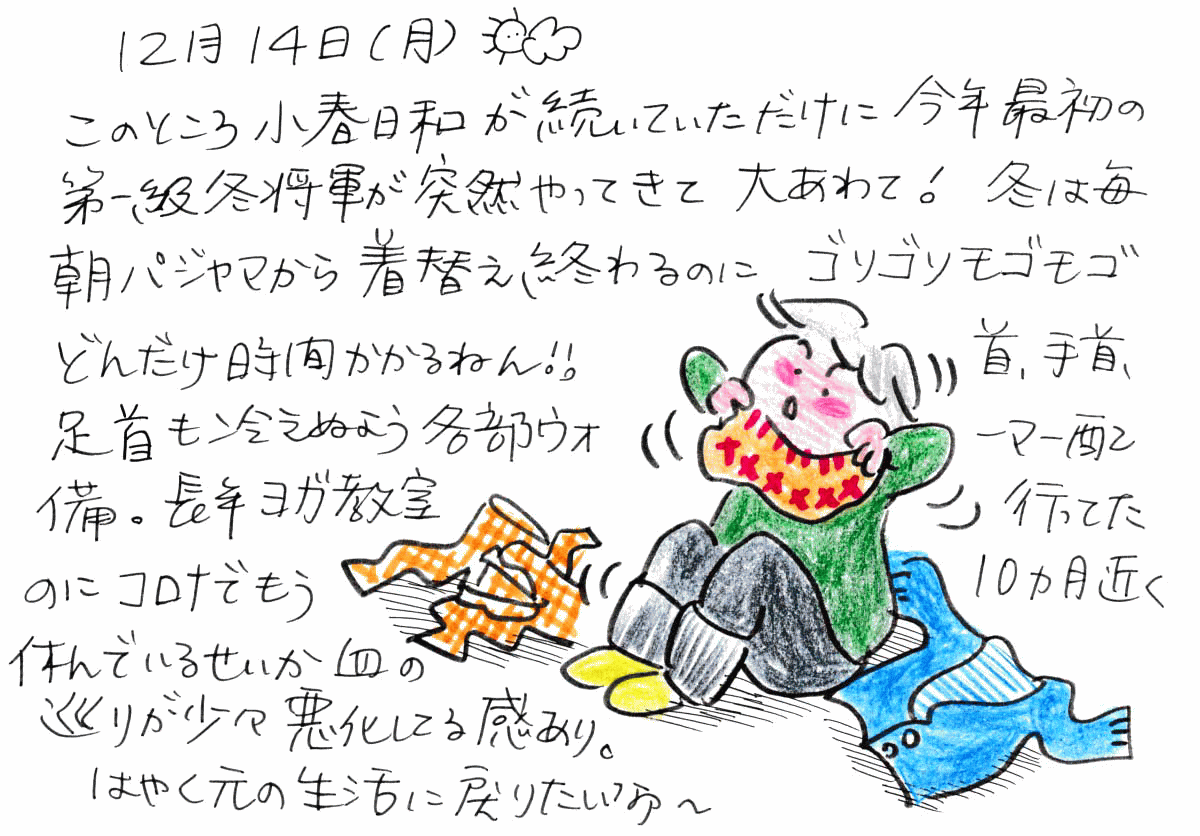 12月14日(月)
このところ小春日和が続いていただけに今年最初の
第一級冬将軍が突然やってきて 大あわて! 冬は毎
朝パジャマから着替え終わるのに ゴソゴソモゴモゴ
どんだけ時間かかるねん!! 首、手首、
足首も冷えぬよう各部ウォーマー配
備。長年ヨガ教室 行ってた
のにコロナでもう 10カ月近く
休んでいるせいか血の
巡りが少々悪化してる感あり。
はやく元の生活に戻りたいわ〜